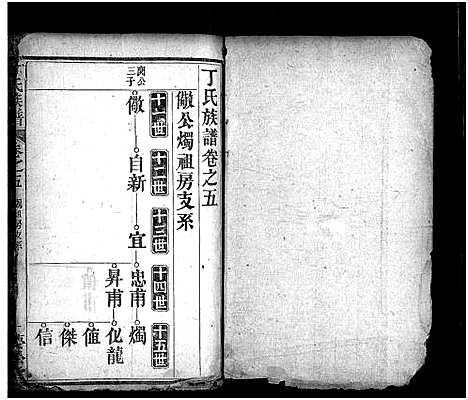 丁氏族譜卷之五
儆公燭祖房支系
十一世 十二世 十三世 十四世 十五世
三子
儆 自新 宜 忠甫 燭
昇甫 化龍
值
傑
信
氏族譜 卷之五